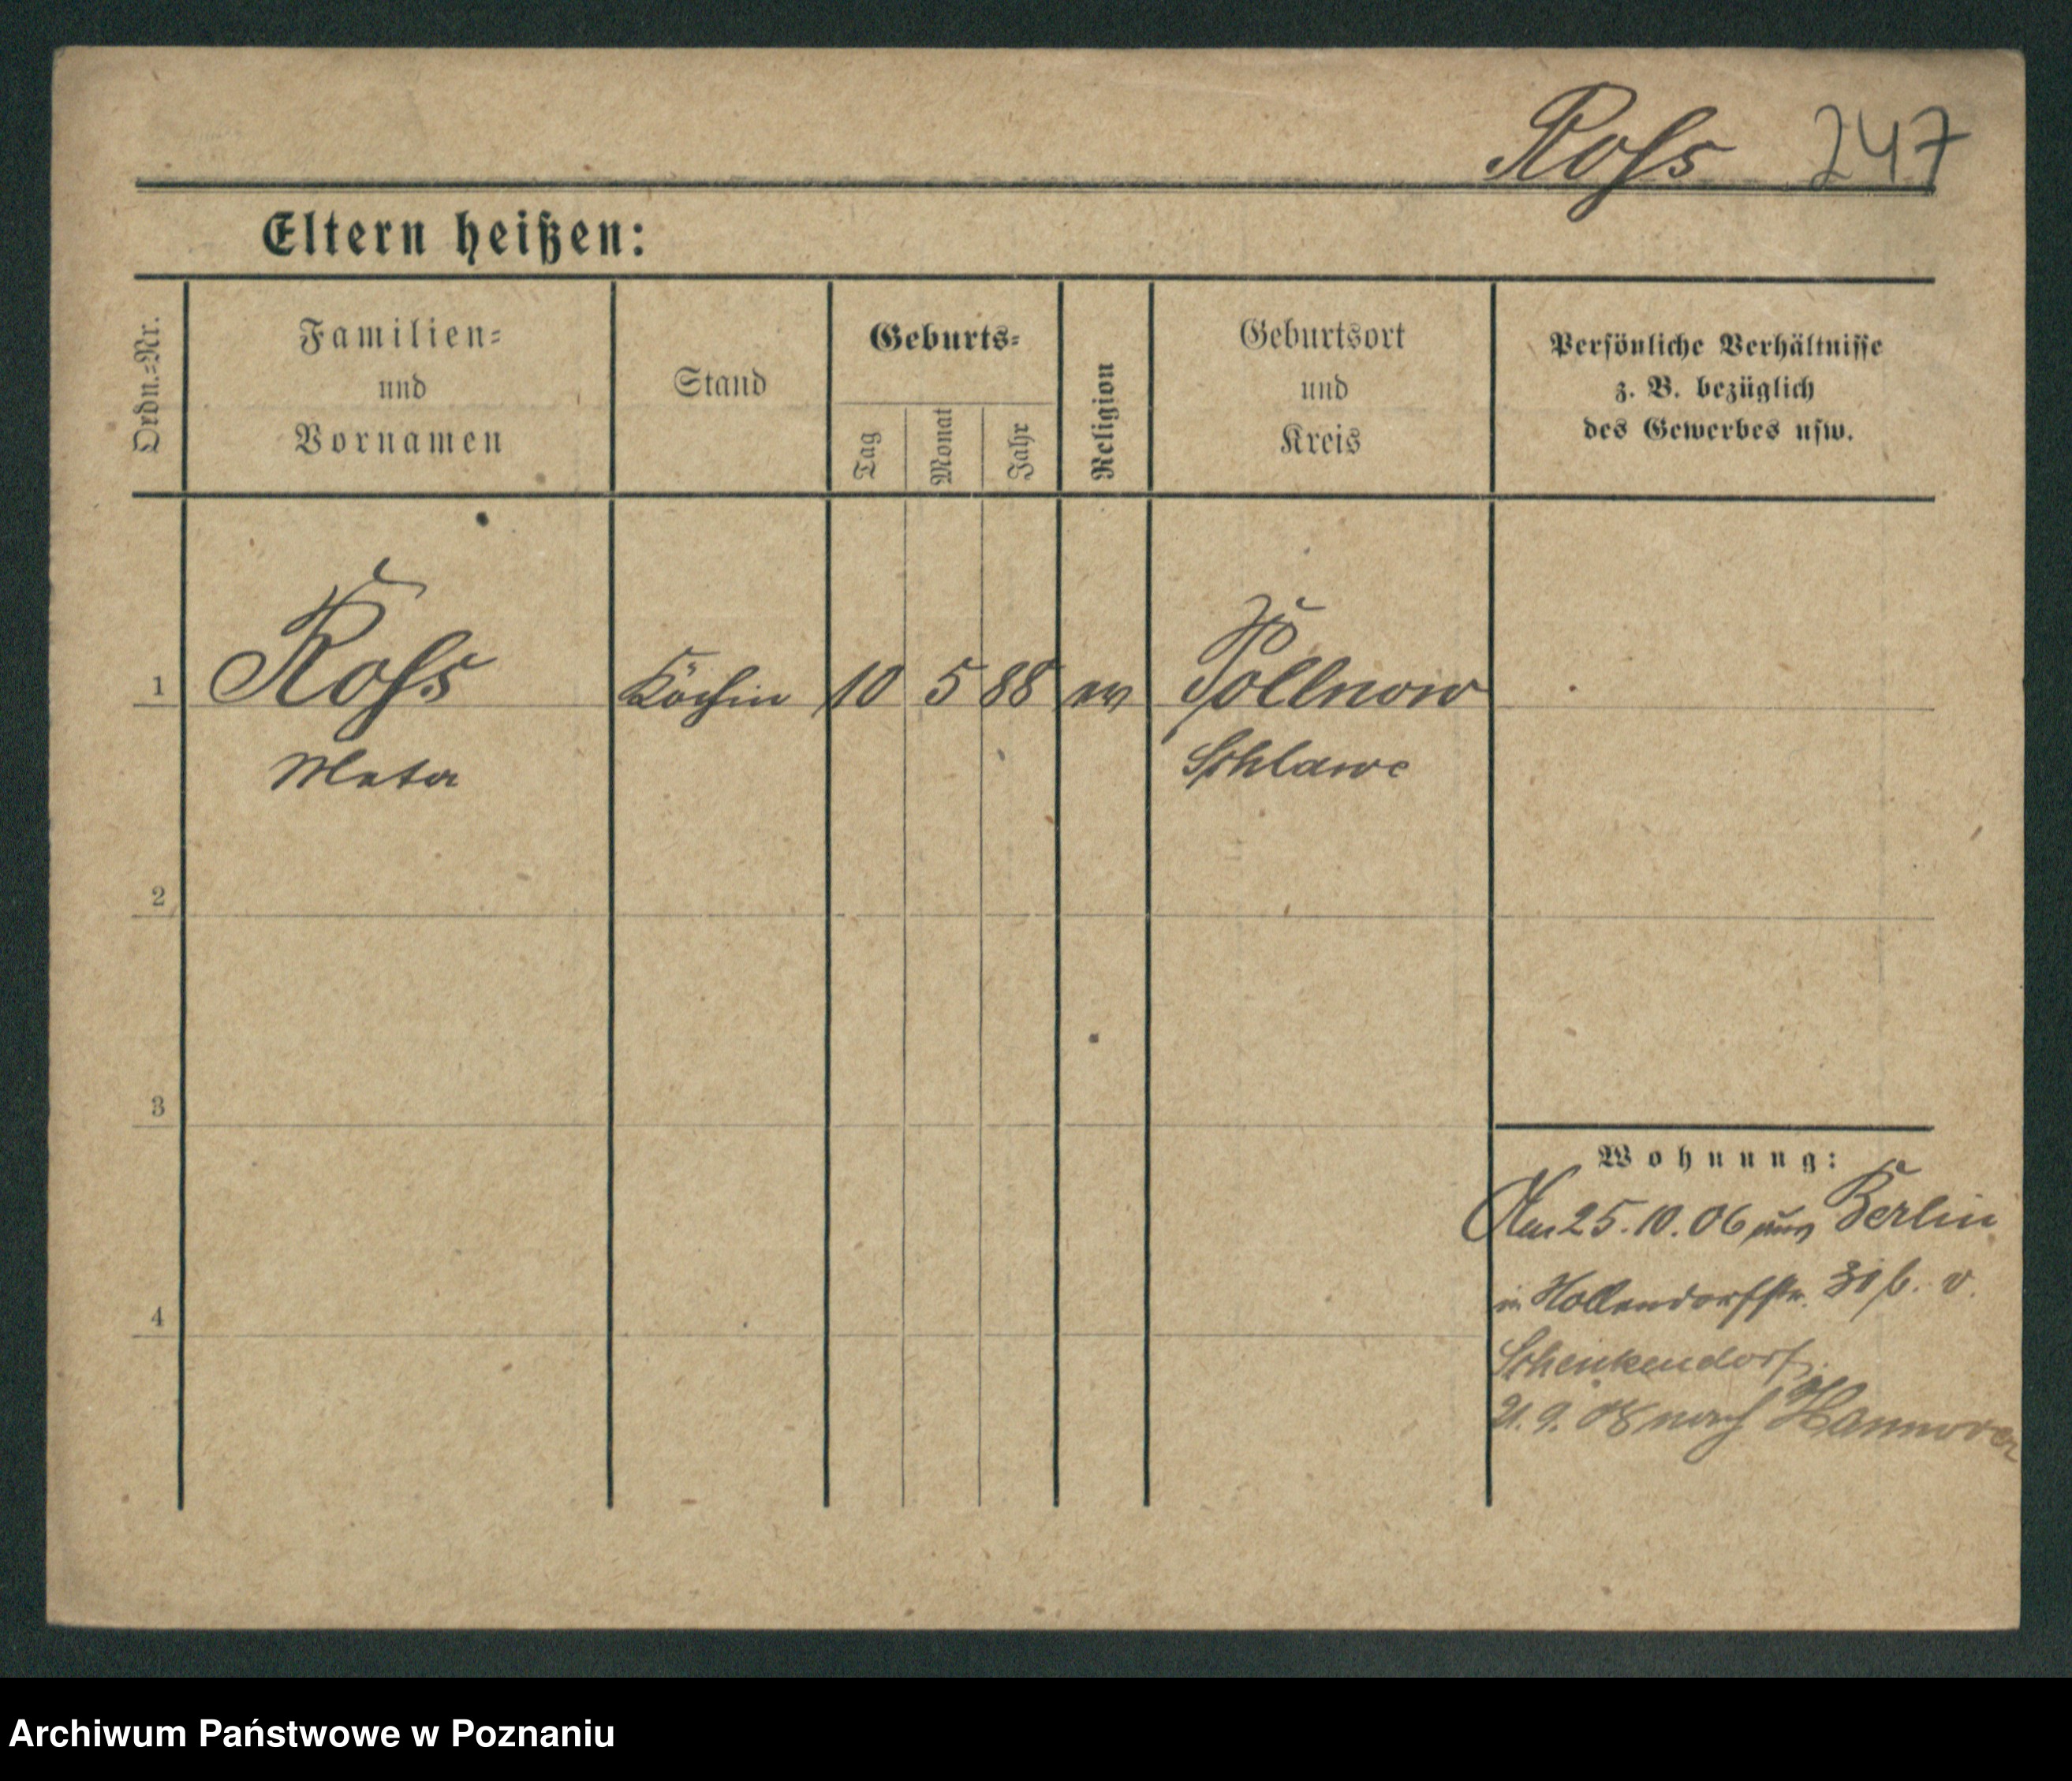 Roſs 247
Eltern heißen:
Ordn.-Nr.
Familien-
und
Vornamen
Stand
Geburts-
Tag
Monat
Jahr
Religion
Geburtsort
und
Kreis
Persönliche Verhältnisse
z. B. bezüglich
des Gewerbes usw.
1 Roſs Köchin 10 5 88 ev Pollnow
Meta Schlawe
2
3
4
Wohnung:
Am 25.10.06 aus Berlin
in Hollendorfstr. b. v.
Schenkendorf.
21.9.08 nach Hannover
Archiwum Państwowe w Poznaniu